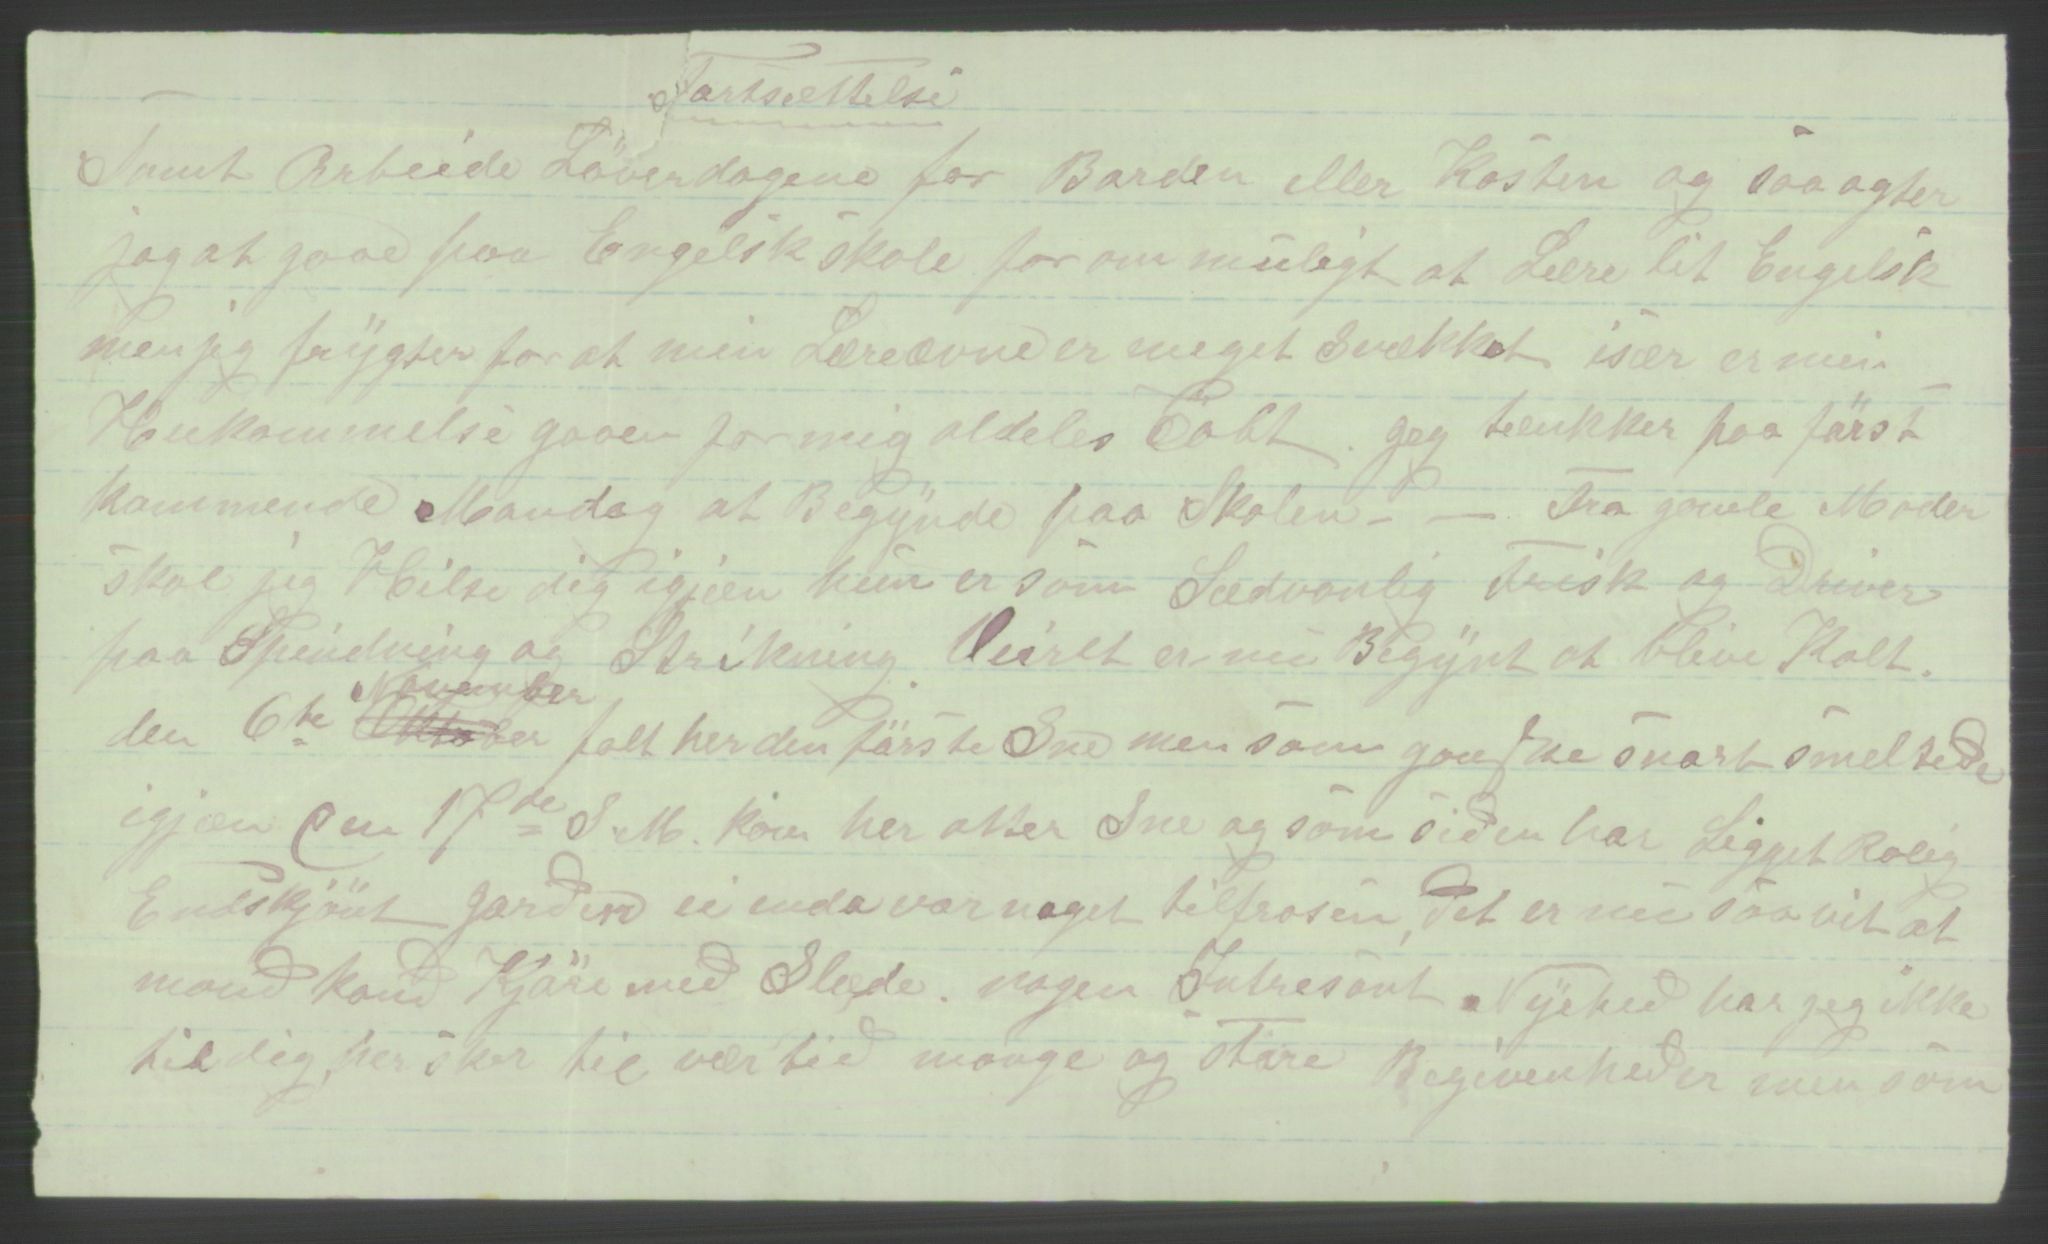 Fortsættelse
Samt Arbeide Löverdagene for Borden eller Kosten og saa agter
jeg at gaae paa Engelsk skole for om muligt at Lære lit Engelsk
men jeg frygter for at min Læreævne er meget Svækket især er min
Hukommelse gaaen for mig aldeles Tabt. Jeg tænkker paa först
kommende Mandag at Begynde paa Skolen - — Fra gamle Moder
skal jeg Hilse dig igjæn hun er som Sædvanlig Frisk og Driver
paa Spindning og Strikning. Veiret er nu Begynt at blive Kalt.
den 6te November Oktober falt her den förste Sne men som ganske snart smeltede
igjæn den 17de S. M. kom her atter Sne og som siden har Ligget Rolig
Endskjönt Jorden ei enda var noget tilfrosen, det er nu saavit at
mand kand Kjöre med Slede. nogen Intresant Nyehed har jeg ikke
til dig, her sker til vær tid mange og store Begivenheder men som